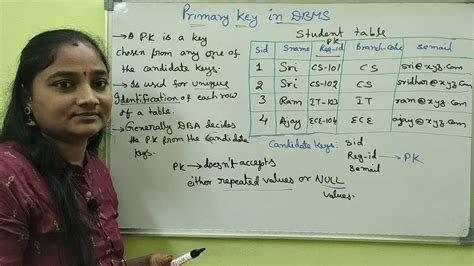 Primary key in DBMS
→ A P.K is a key
chosen from any one of
the candidate keys.
→ Is used for unique
Identification of each row
of a table.
→ Generally DBA decides
the P.K from the candidate
keys.
Student table
PK
Sid Sname Reg-id Branch-code semail
1 Sri CS-101 CS sri@xyz.com
2 Sri CS-102 CS sridhar@xyz.com
3 Ram IT-103 IT ram@xyz.com
4 Ajay ECE-104 ECE ajay@xyz.com
Candidate Keys: Sid
Reg-id → PK
Semail
PK → doesn't accepts
either repeated values or NULL
values.